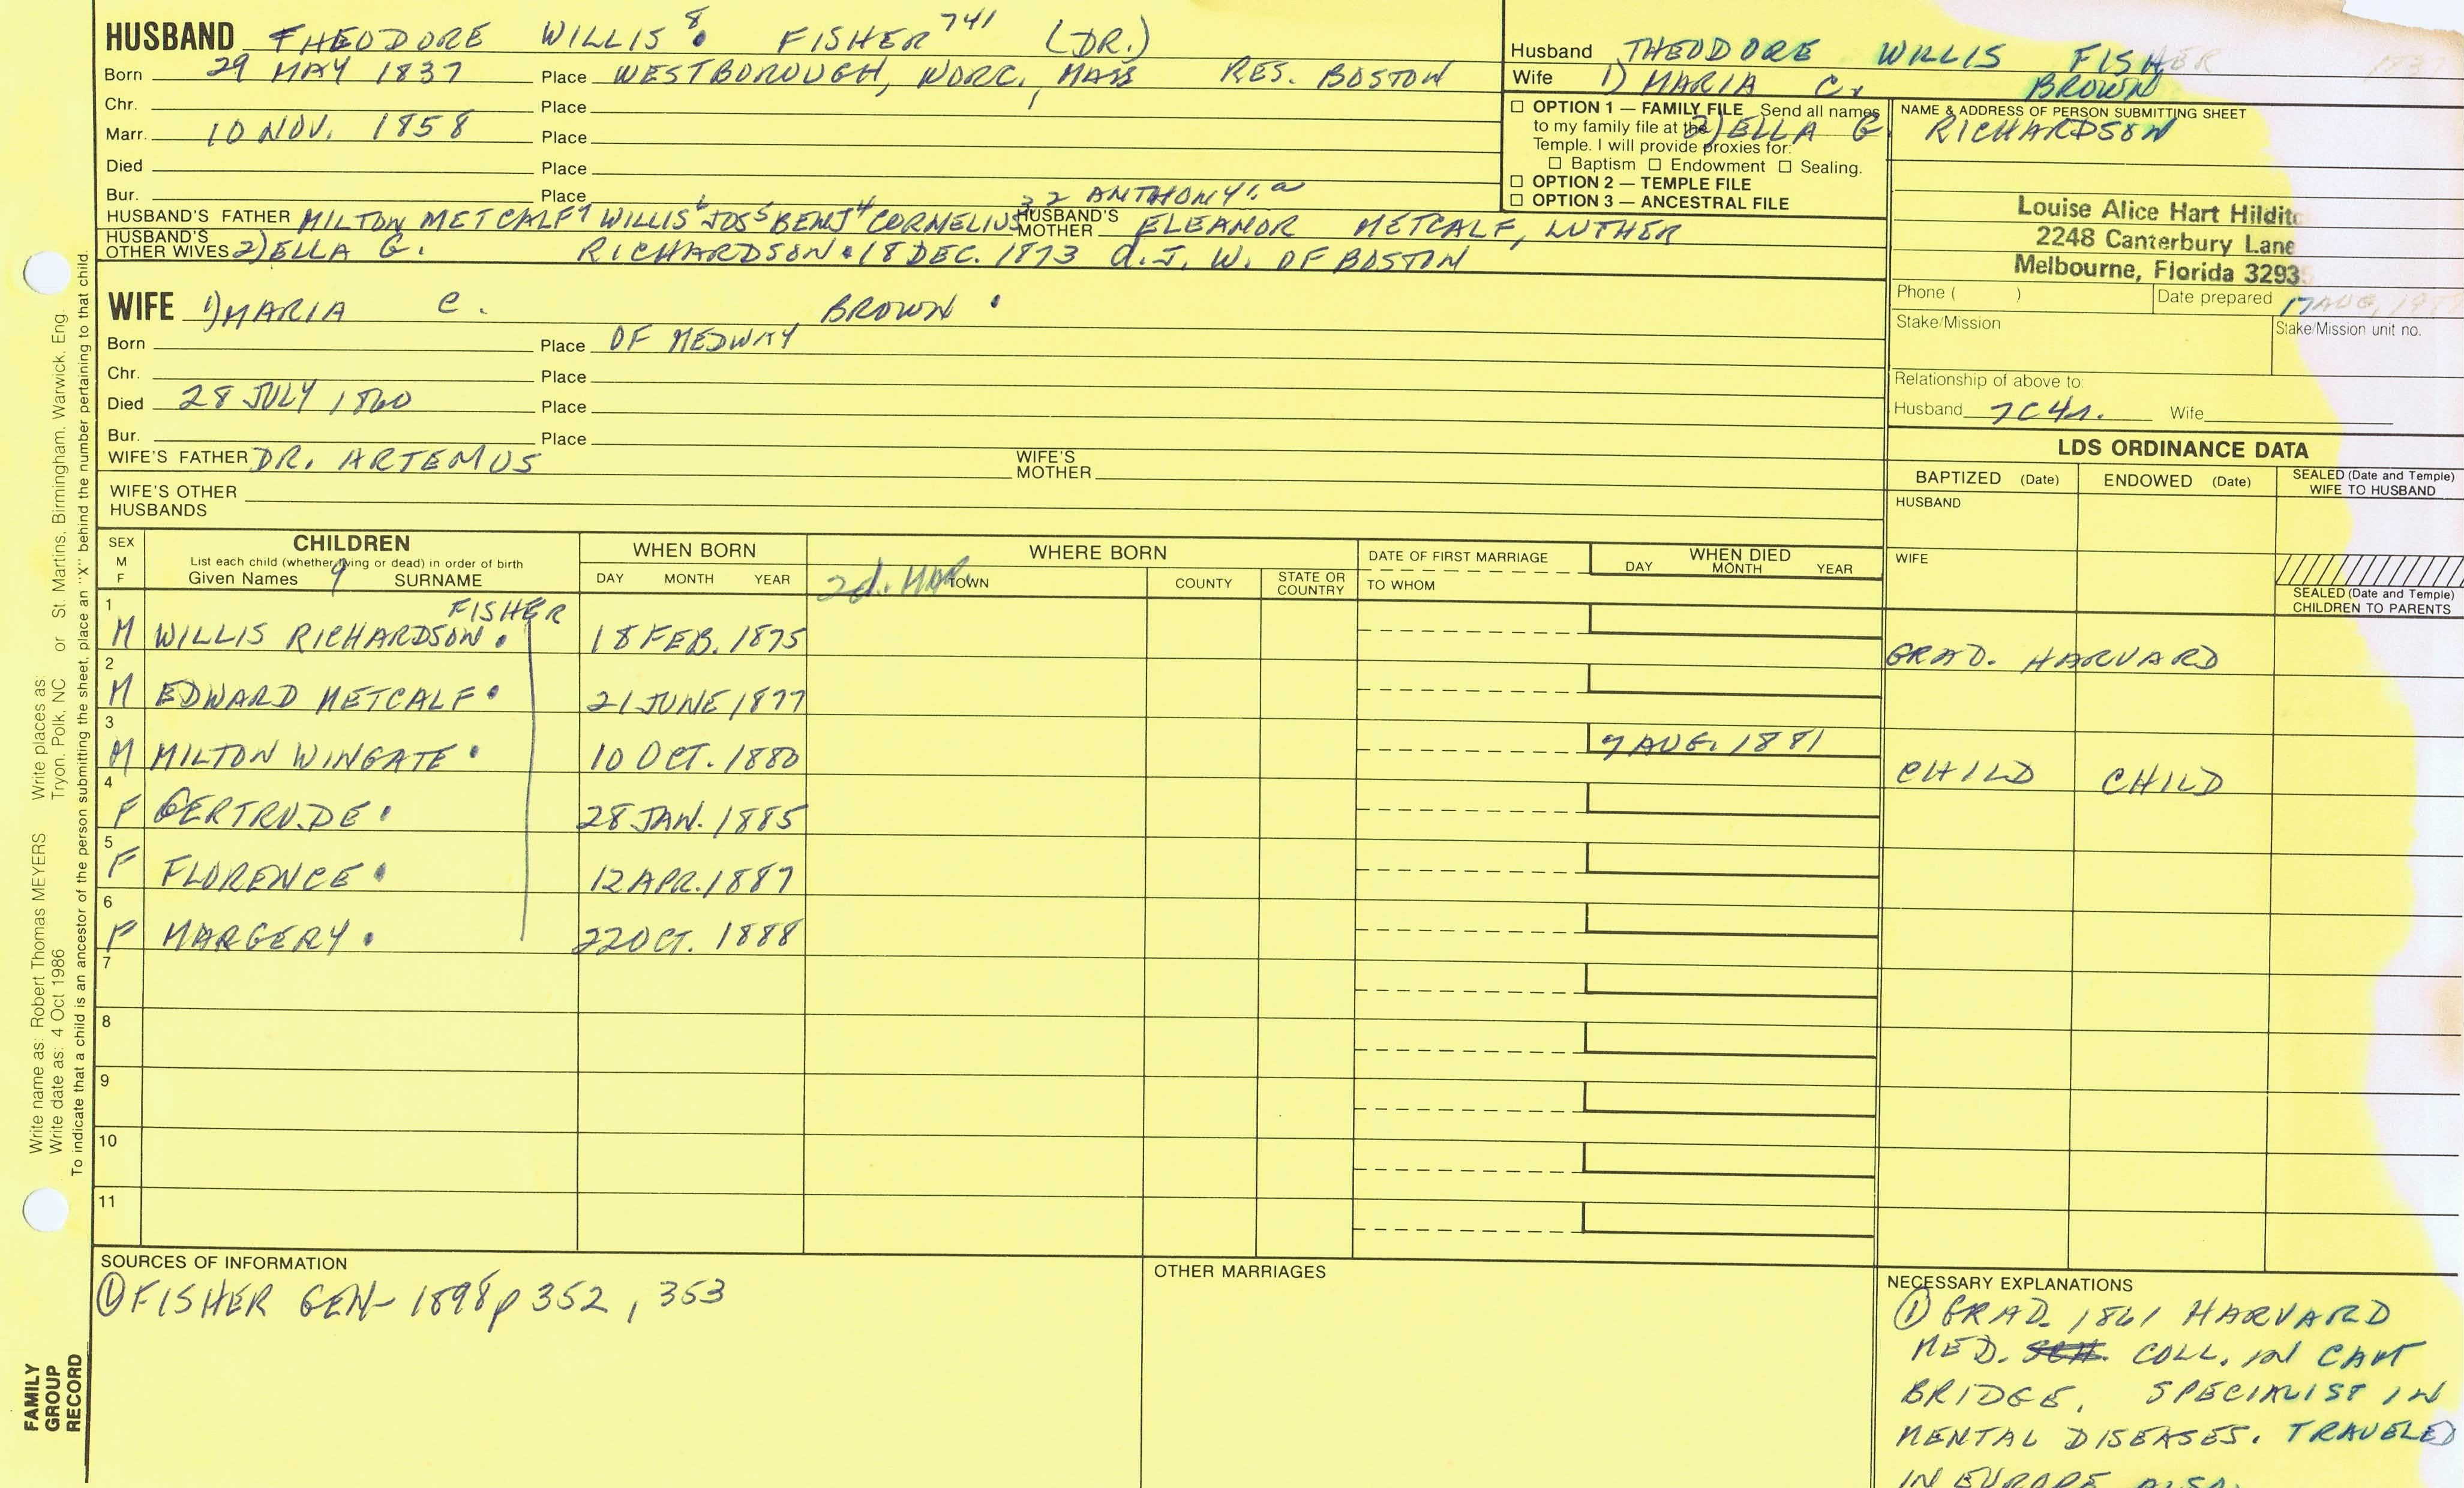 HUSBAND THEODORE WILLIS 8 FISHER 741 (DR.)
Born 29 MAY 1837 Place WESTBOROUGH, WORC., MASS RES. BOSTON
Chr. Place
Marr. 10 NOV. 1858 Place
Died Place
Bur. Place
3 2 ANTHONY 1, a
HUSBAND'S FATHER MILTON METCALF 7 WILLIS 6 JOS 5 BENJ 4 CORNELIUS HUSBAND'S MOTHER ELEANOR METCALF, LUTHER
HUSBAND'S OTHER WIVES 2) ELLA G. RICHARDSON • 18 DEC. 1873 d. J. W. OF BOSTON
WIFE 1) MARIA C. BROWN •
Born Place OF MEDWAY
Chr. Place
Died 28 JULY 1860 Place
Bur. Place
WIFE'S FATHER DR. ARTEMUS WIFE'S MOTHER
WIFE'S OTHER HUSBANDS
Husband THEODORE WILLIS FISHER
Wife 1) MARIA C. BROWN
2) ELLA G RICHARDSON
☐ OPTION 1 — FAMILY FILE Send all names
to my family file at the
Temple. I will provide proxies for:
☐ Baptism ☐ Endowment ☐ Sealing.
☐ OPTION 2 — TEMPLE FILE
☐ OPTION 3 — ANCESTRAL FILE
NAME & ADDRESS OF PERSON SUBMITTING SHEET
Louise Alice Hart
2248 Canterbury Lane
Melbourne, Florida 3293
Phone ( ) Date prepared 17 AUG,
Stake/Mission Stake/Mission unit no.
Relationship of above to:
Husband 7C4r. Wife
LDS ORDINANCE DATA
BAPTIZED (Date) ENDOWED (Date) SEALED (Date and Temple) WIFE TO HUSBAND
HUSBAND
WIFE
SEALED (Date and Temple) CHILDREN TO PARENTS
SEX M F
CHILDREN
List each child (whether living or dead) in order of birth
Given Names SURNAME
WHEN BORN
DAY MONTH YEAR
WHERE BORN
2d. MAR.
TOWN COUNTY STATE OR COUNTRY
DATE OF FIRST MARRIAGE
TO WHOM
WHEN DIED
DAY MONTH YEAR
FISHER
1 M WILLIS RICHARDSON • 18 FEB. 1875 GRAD. HARVARD
2 M EDWARD METCALF • 21 JUNE 1877
3 M MILTON WINGATE • 10 OCT. 1880 7 AUG. 1881 CHILD CHILD
4 F GERTRUDE • 28 JAN. 1885
5 F FLORENCE • 12 APR. 1887
6 F MARGERY • 22 OCT. 1888
7
8
9
10
11
SOURCES OF INFORMATION
① FISHER GEN- 1898 p 352, 353
OTHER MARRIAGES
NECESSARY EXPLANATIONS
① GRAD. 1861 HARVARD
MED. COLL. IN CAM
BRIDGE. SPECIALIST IN
MENTAL DISEASES. TRAVELED
IN EUROPE ALSO
Write name as: Robert Thomas MEYERS Write places as: Tryon, Polk, NC or St. Martins, Birmingham, Warwick, Eng.
Write date as: 4 Oct 1986
To indicate that a child is an ancestor of the person submitting the sheet, place an "X" behind the number pertaining to that child.
FAMILY
GROUP
RECORD